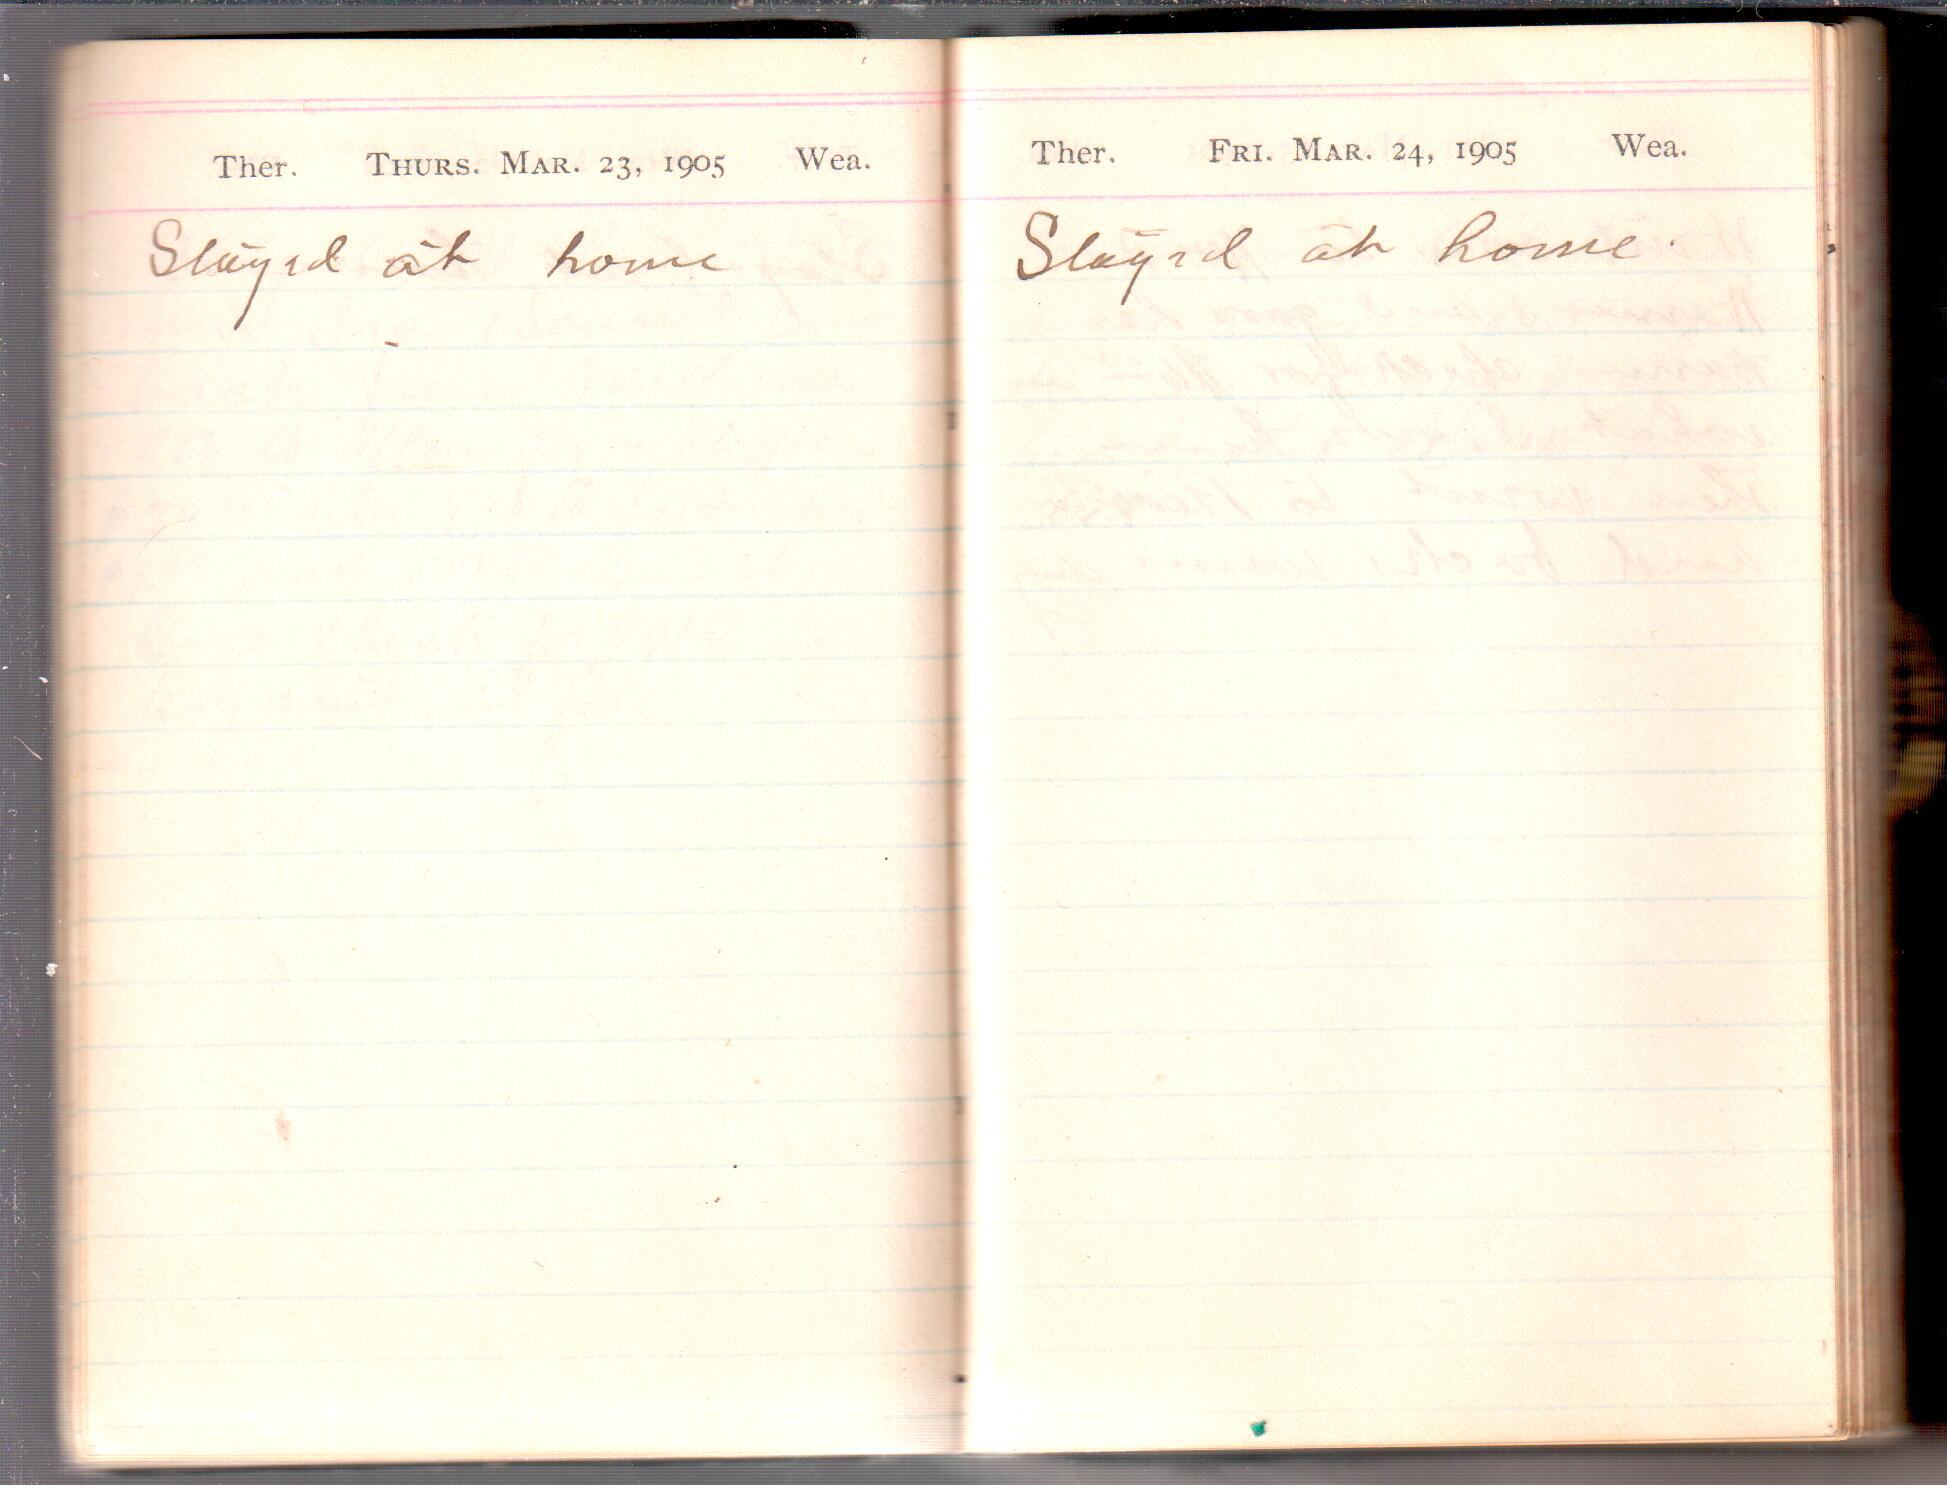 Ther. THURS. MAR. 23, 1905 Wea.
Stayed at home
Ther. FRI. MAR. 24, 1905 Wea.
Stayed at home.